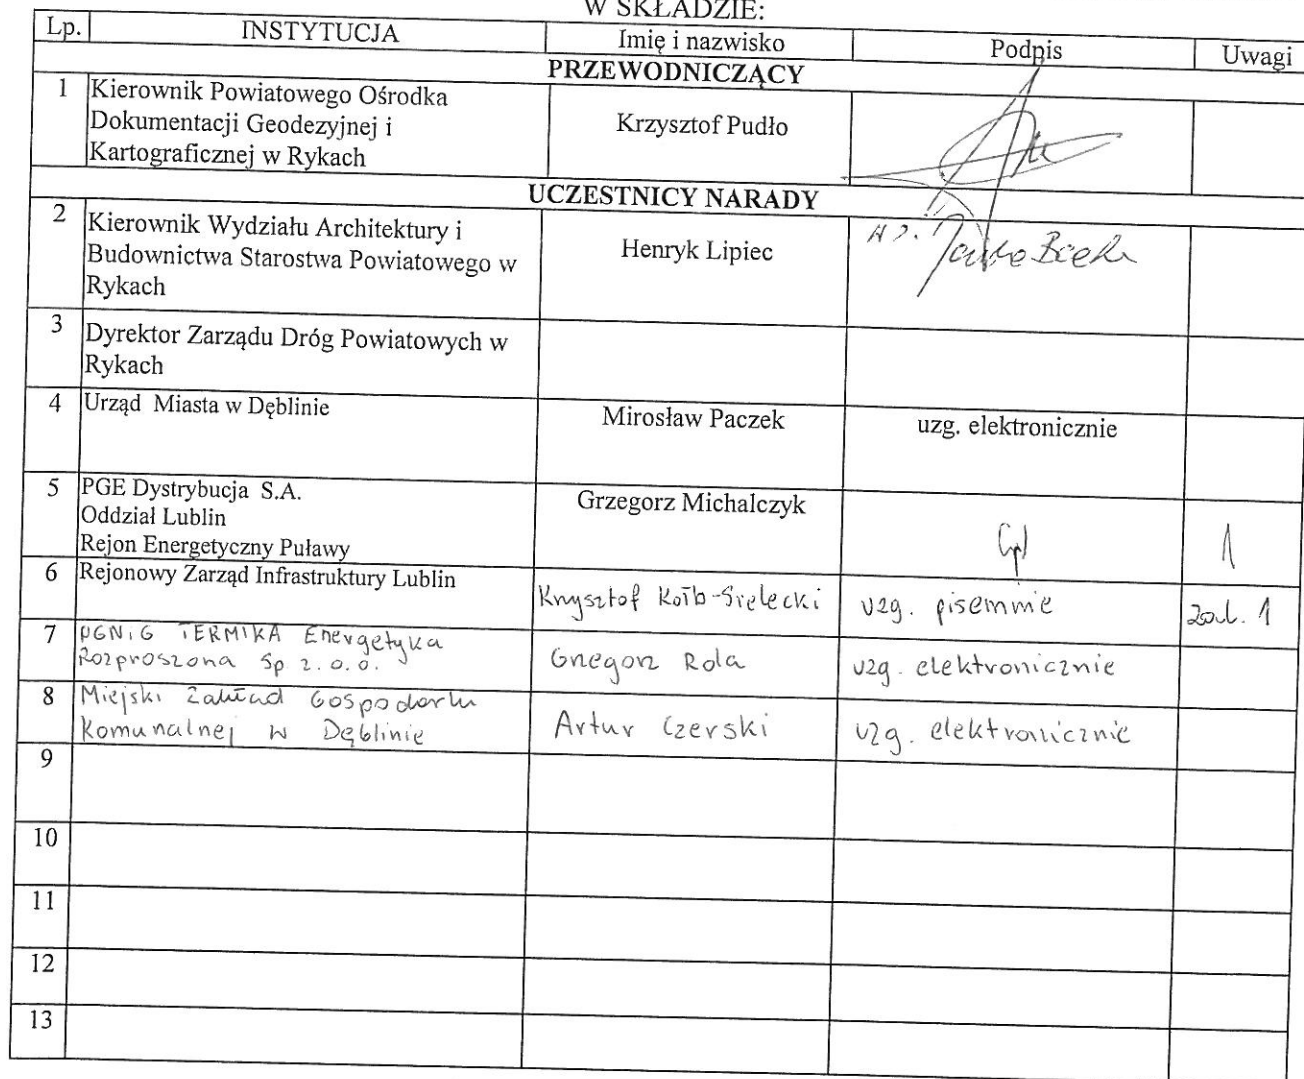 W SKŁADZIE:
Lp. INSTYTUCJA Imię i nazwisko Podpis Uwagi
PRZEWODNICZĄCY
1 Kierownik Powiatowego Ośrodka
Dokumentacji Geodezyjnej i
Kartograficznej w Rykach
Krzysztof Pudło
UCZESTNICY NARADY
2 Kierownik Wydziału Architektury i
Budownictwa Starostwa Powiatowego w
Rykach
Henryk Lipiec
3 Dyrektor Zarządu Dróg Powiatowych w
Rykach
4 Urząd Miasta w Dęblinie Mirosław Paczek uzg. elektronicznie
5 PGE Dystrybucja S.A.
Oddział Lublin
Rejon Energetyczny Puławy
Grzegorz Michalczyk
1
6 Rejonowy Zarząd Infrastruktury Lublin Krzysztof Kołb-Sielecki uzg. pisemnie Zał. 1
7 PGNiG TERMIKA Energetyka
Rozproszona Sp z.o.o.
Grzegorz Rola uzg. elektronicznie
8 Miejski Zakład Gospodarki
Komunalnej w Dęblinie
Artur Czerski uzg. elektronicznie
9
10
11
12
13